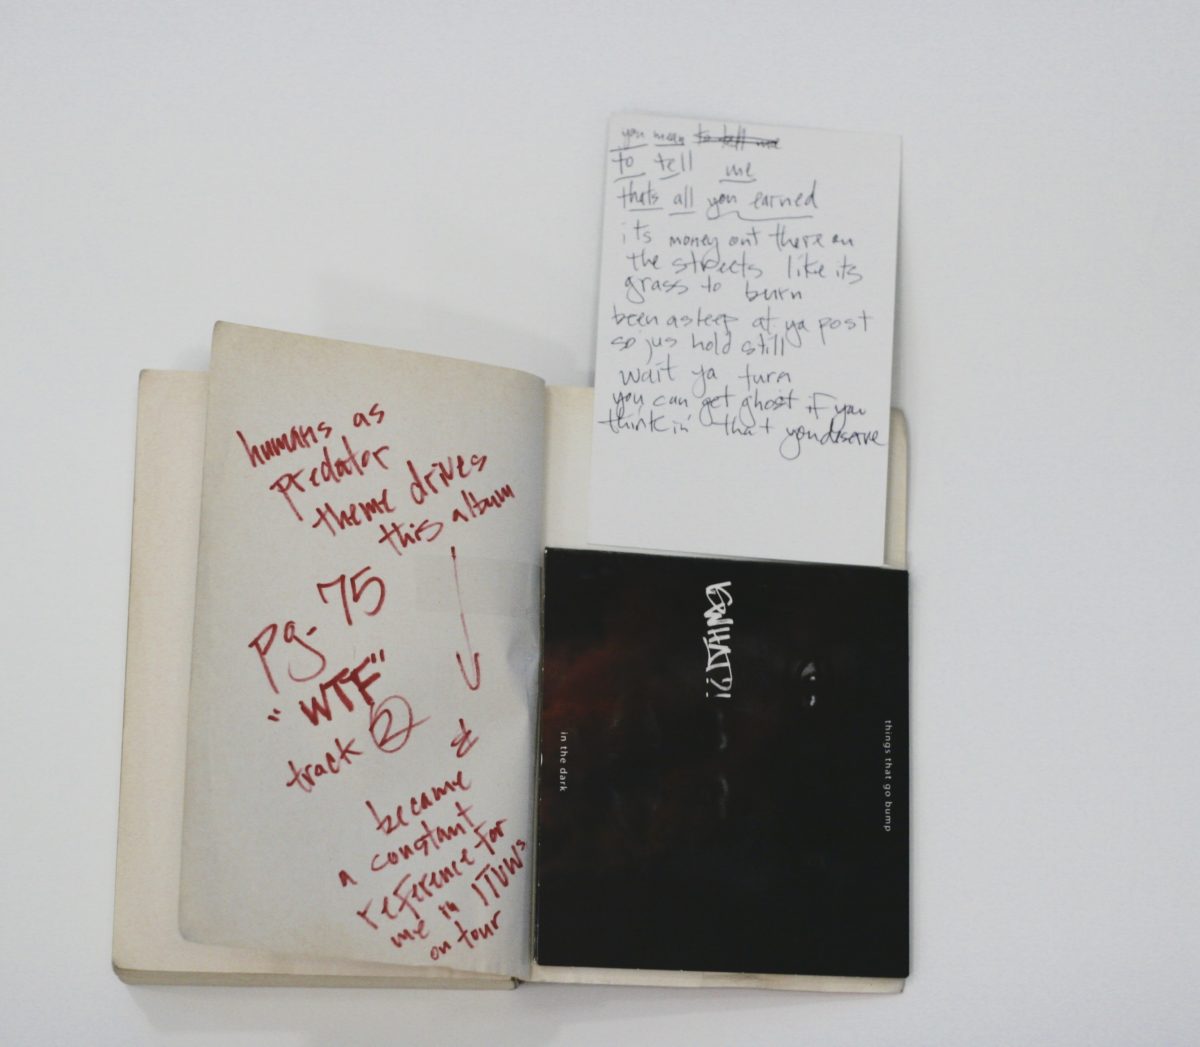 humans as
predator
theme drives
this album
pg. 75
"WTF"
track 2
&
became
a constant
reference for
me in ITVWs
on tour
you mean to tell me
to tell me
thats all you earned
its money out there on
the streets like its
grass to burn
been asleep at ya post
so jus hold still
wait ya turn
you can get ghost if you
thinkin' that you deserve
things that go bump
in the dark